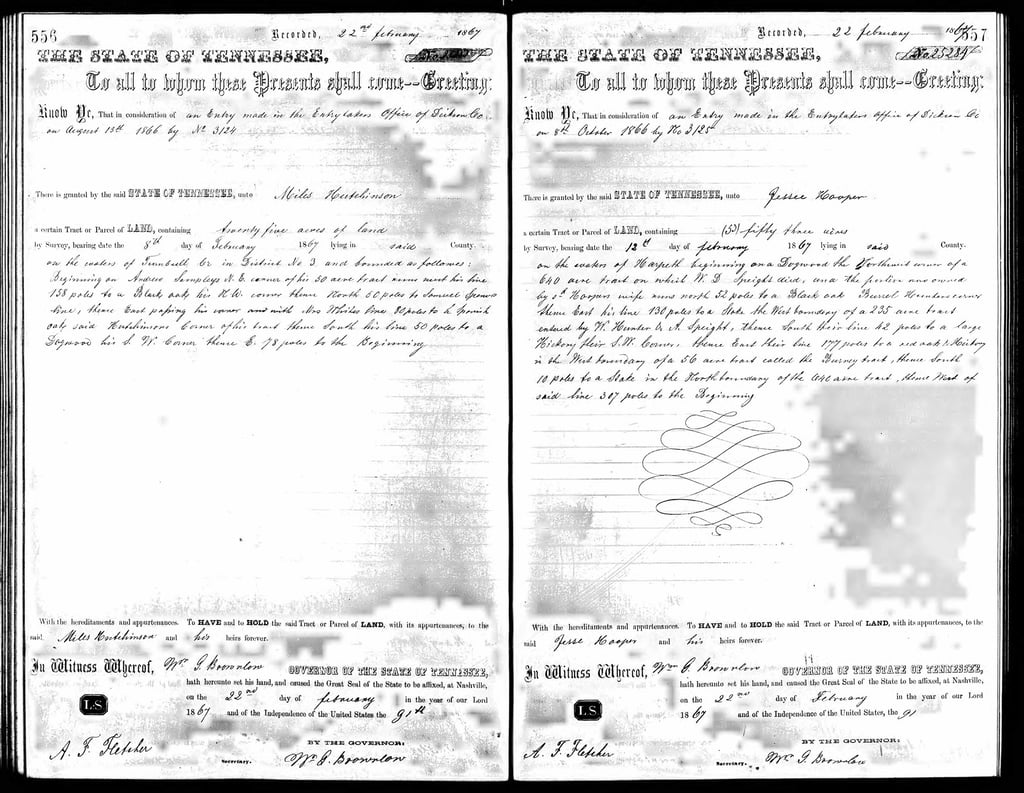 556
Recorded, 22nd february 1867
THE STATE OF TENNESSEE,
To all to whom these Presents shall come--Greeting:
Know Ye, That in consideration of an Entry made in the Entrytakers Office of Dickson Co
on August 13th 1866 by No 3124
There is granted by the said STATE OF TENNESSEE, unto Miles Hutchinson
a certain Tract or Parcel of LAND, containing twenty five acres of land
by Survey, bearing date the 8th day of February 1867 lying in said County.
on the waters of Turnbull Cr in District No 3 and bounded as follows:
Beginning on Andrew Sampleys N. E. corner of his 50 acre tract runs west his line
158 poles to a Black oak, his N.W. corner thence North 50 poles to Samuel
line, thence East passing his corner and with Mrs Whites line 80 poles to a Spanish
oak, said Hutchinsons Corner of his tract thence South his line 50 poles to a
Dogwood his S. W. Corner thence E. 78 poles to the Beginning
With the hereditaments and appurtenances. To HAVE and to HOLD the said Tract or Parcel of LAND, with its appurtenances, to the
said Miles Hutchinson and his heirs forever.
In Witness Whereof, Wm G. Brownlow GOVERNOR OF THE STATE OF TENNESSEE,
hath hereunto set his hand, and caused the Great Seal of the State to be affixed, at Nashville,
on the 22nd day of february in the year of our Lord
L.S
1867 and of the Independence of the United States the 91st
BY THE GOVERNOR:
A. F. Fletcher Secretary. Wm G. Brownlow
557
Recorded, 22 february 1867
THE STATE OF TENNESSEE, No 25284
To all to whom these Presents shall come--Greeting:
Know Ye, That in consideration of an Entry made in the Entrytakers office of Dickson Co
on 8th October 1866 by No 3125
There is granted by the said STATE OF TENNESSEE, unto Jessee Hooper
a certain Tract or Parcel of LAND, containing (53) fifty three acres
by Survey, bearing date the 12th day of february 1867 lying in said County.
on the waters of Harpeth beginning on a Dogwood the Northwest corner of a
640 acre tract on which W. D. Speight died, and the portion now owned
by Harpers wife runs north 52 poles to a Black oak Burrel Hunters corner
thence East his line 130 poles to a Stake the West boundary of a 235 acre tract
entered by W. Hunter & A. Speight, thence South their line 42 poles to a large
Hickory their S.W. Corner, thence East their line 177 poles to a red oak & Hickory
in the West boundary of a 56 acre tract called the Burney tract, thence South
10 poles to a Stake in the North boundary of the 640 acre tract, thence West of
said line 307 poles to the Beginning
With the hereditaments and appurtenances. To HAVE and to HOLD the said Tract or Parcel of LAND, with its appurtenances, to the
said Jesse Hooper and his heirs forever.
In Witness Whereof, Wm G. Brownlow GOVERNOR OF THE STATE OF TENNESSEE,
hath hereunto set his hand, and caused the Great Seal of the State to be affixed, at Nashville,
on the 22nd day of February in the year of our Lord
L.S
1867 and of the Independence of the United States, the 91
BY THE GOVERNOR:
A. F. Fletcher Secretary. Wm G. Brownlow